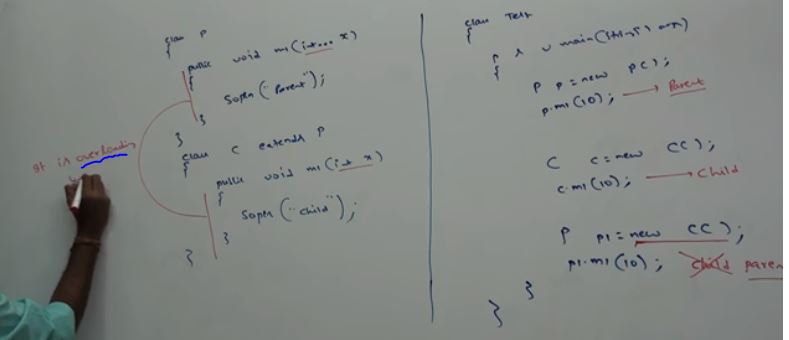 class P
{
public void m1(int... x)
{
Sopln("Parent");
}
}
class C extends P
{
public void m1(int x)
{
Sopln("child");
}
}
It is overloading
class Test
{
P S V main(String[] args)
{
P p=new P();
p.m1(10); → Parent
C c=new C();
c.m1(10); → Child
P p1=new C();
p1.m1(10); Child paren
}
}